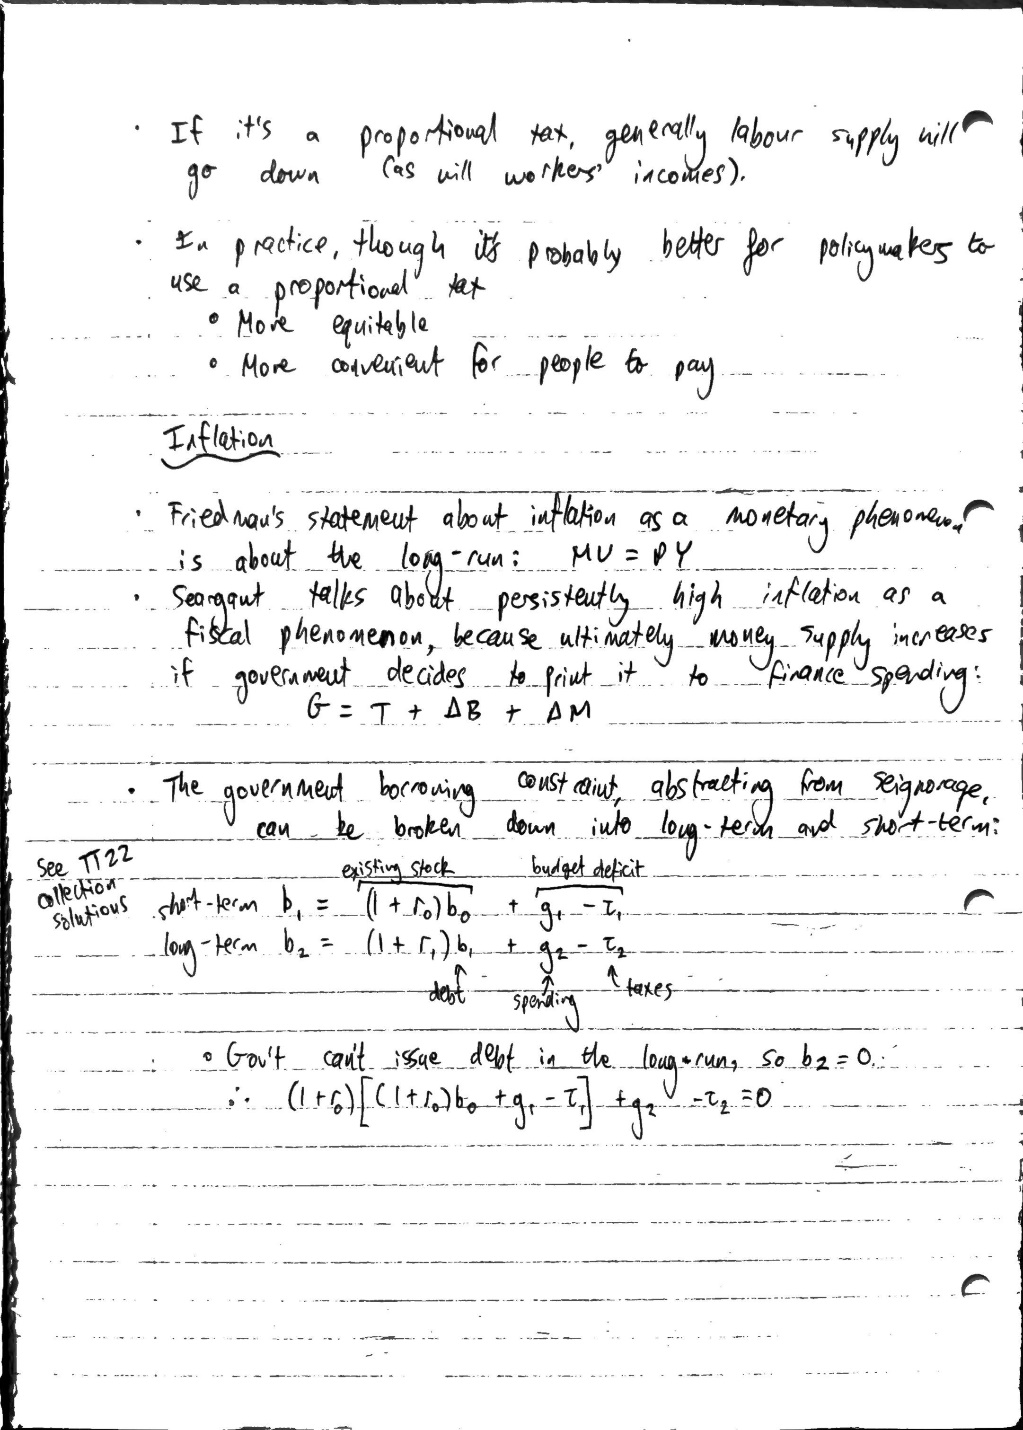 · If it's a proportional tax, generally labour supply will
go down (as will workers' incomes).
· In practice, though it's probably better for policymakers to
use a proportional tax
∘ More equitable
∘ More convenient for people to pay
Inflation
· Friedman's statement about inflation as a monetary phenomenon
is about the long-run: MV = PY
· Seargant talks about persistently high inflation as a
fiscal phenomenon, because ultimately money supply increases
if government decides to print it to finance spending:
G = T + ΔB + ΔM
· The government borrowing constraint, abstracting from seignorage,
can be broken down into long-term and short-term:
See TT22
collection
solutions
existing stock budget deficit
short-term b₁ = (1 + r₀)b₀ + g₁ - τ₁
long-term b₂ = (1 + r₁)b₁ + g₂ - τ₂
debt spending taxes
∘ Gov't can't issue debt in the long-run, so b₂ = 0.
∴ (1+r₀)[(1+r₀)b₀ + g₁ - τ₁] + g₂ - τ₂ = 0